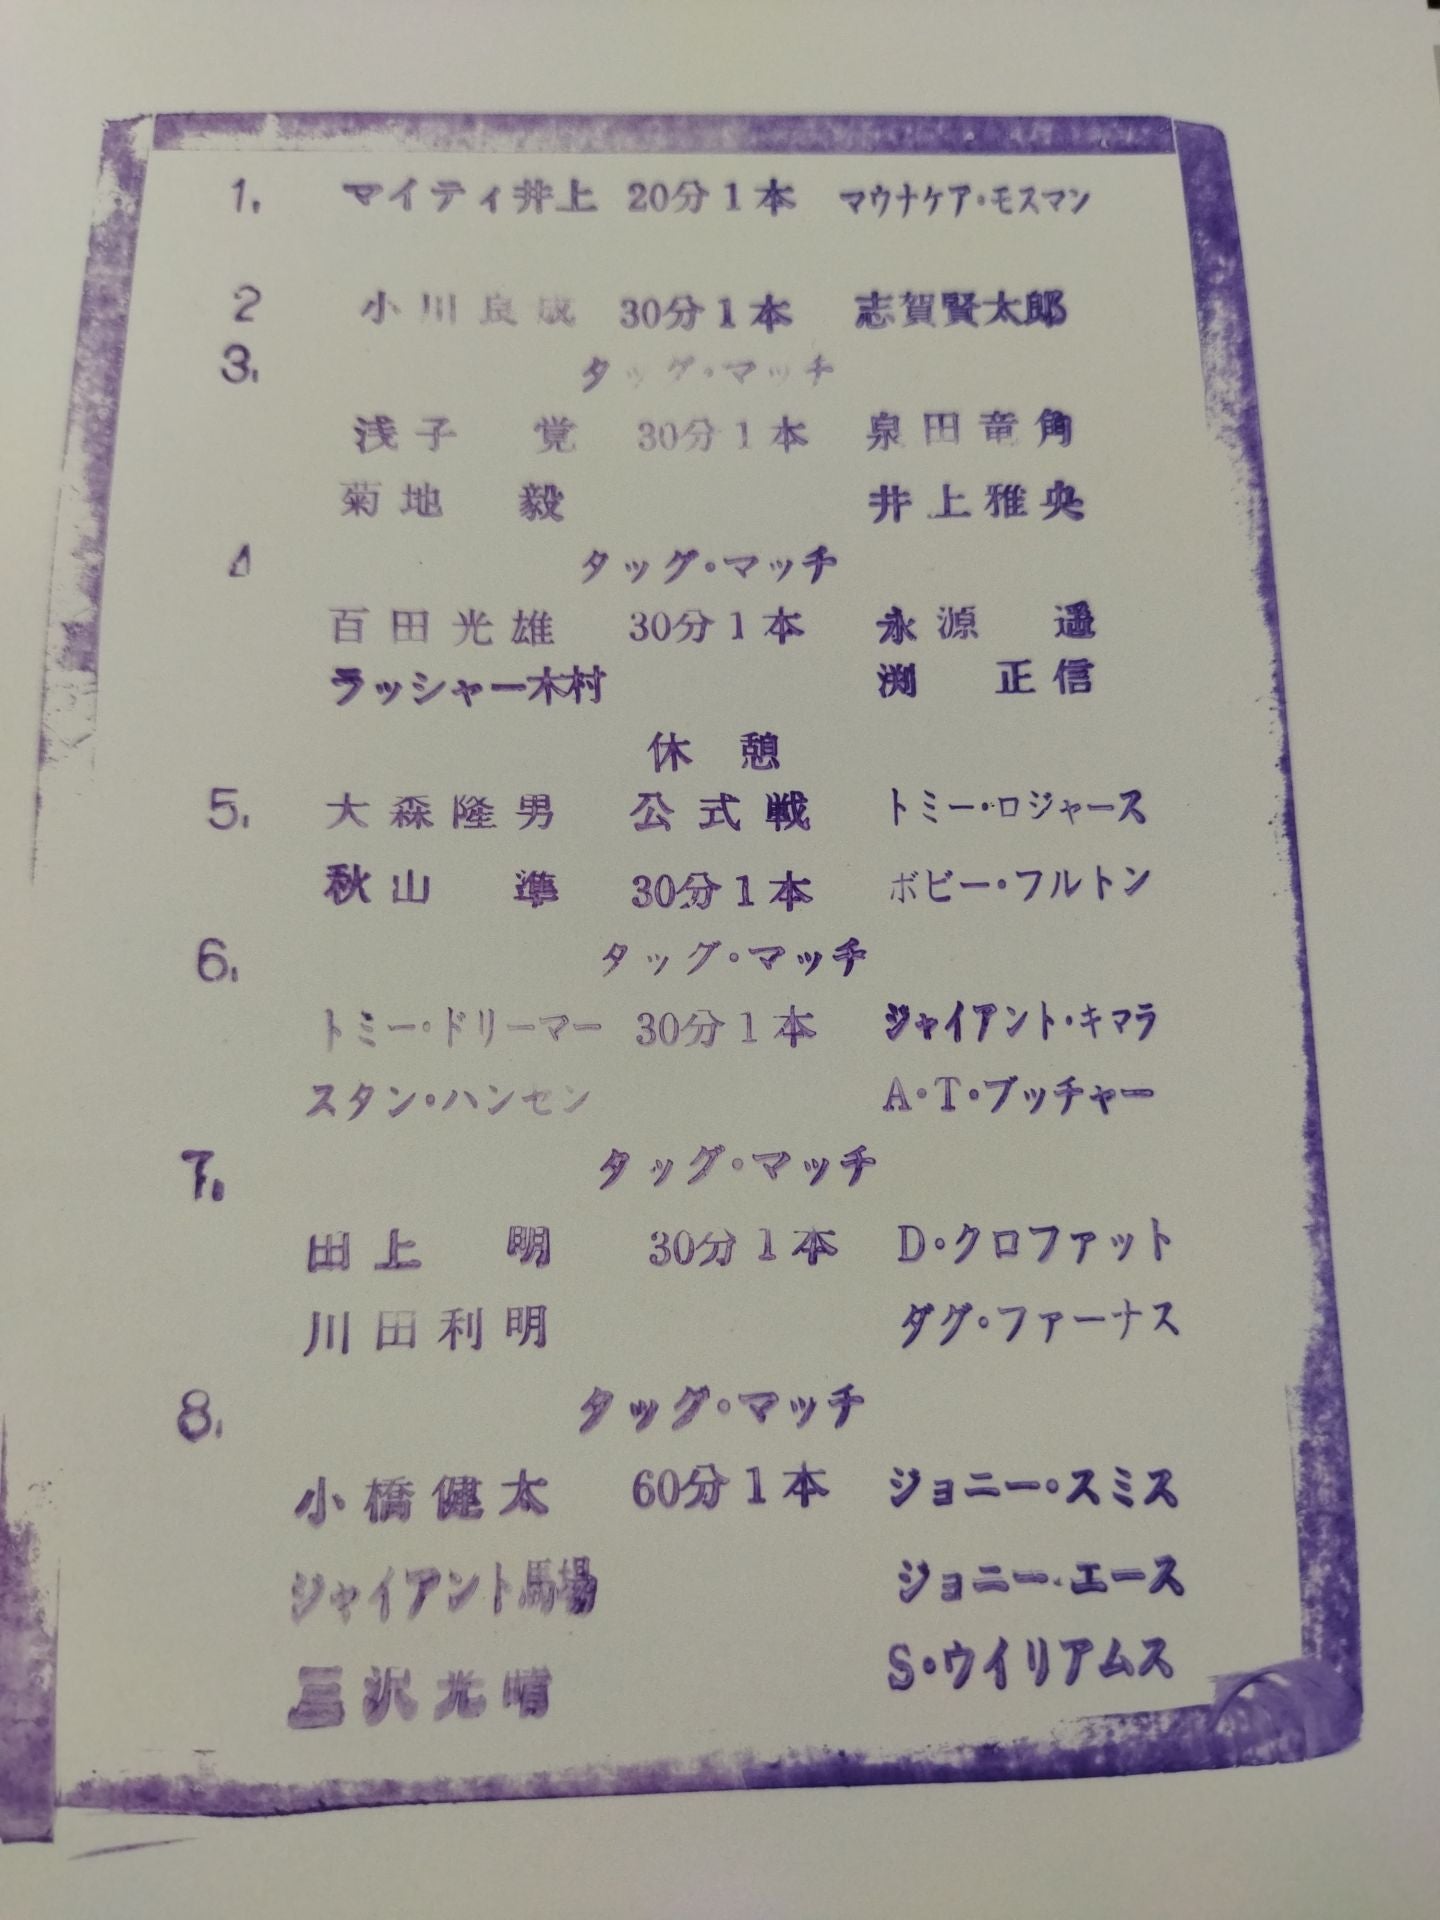 1. マイティ井上 20分1本 マウナケア・モスマン
2 小川良成 30分1本 志賀賢太郎
3. タッグ・マッチ
浅子 覚 30分1本 泉田竜角
菊地 毅 井上雅央
4 タッグ・マッチ
百田光雄 30分1本 永源 遥
ラッシャー木村 渕 正信
休憩
5. 大森隆男 公式戦 トミー・ロジャース
秋山 準 30分1本 ボビー・フルトン
6. タッグ・マッチ
トミー・ドリーマー 30分1本 ジャイアント・キマラ
スタン・ハンセン A・T・ブッチャー
7. タッグ・マッチ
田上 明 30分1本 D・クロファット
川田利明 ダグ・ファーナス
8. タッグ・マッチ
小橋健太 60分1本 ジョニー・スミス
ジャイアント馬場 ジョニー・エース
三沢光晴 S・ウイリアムス